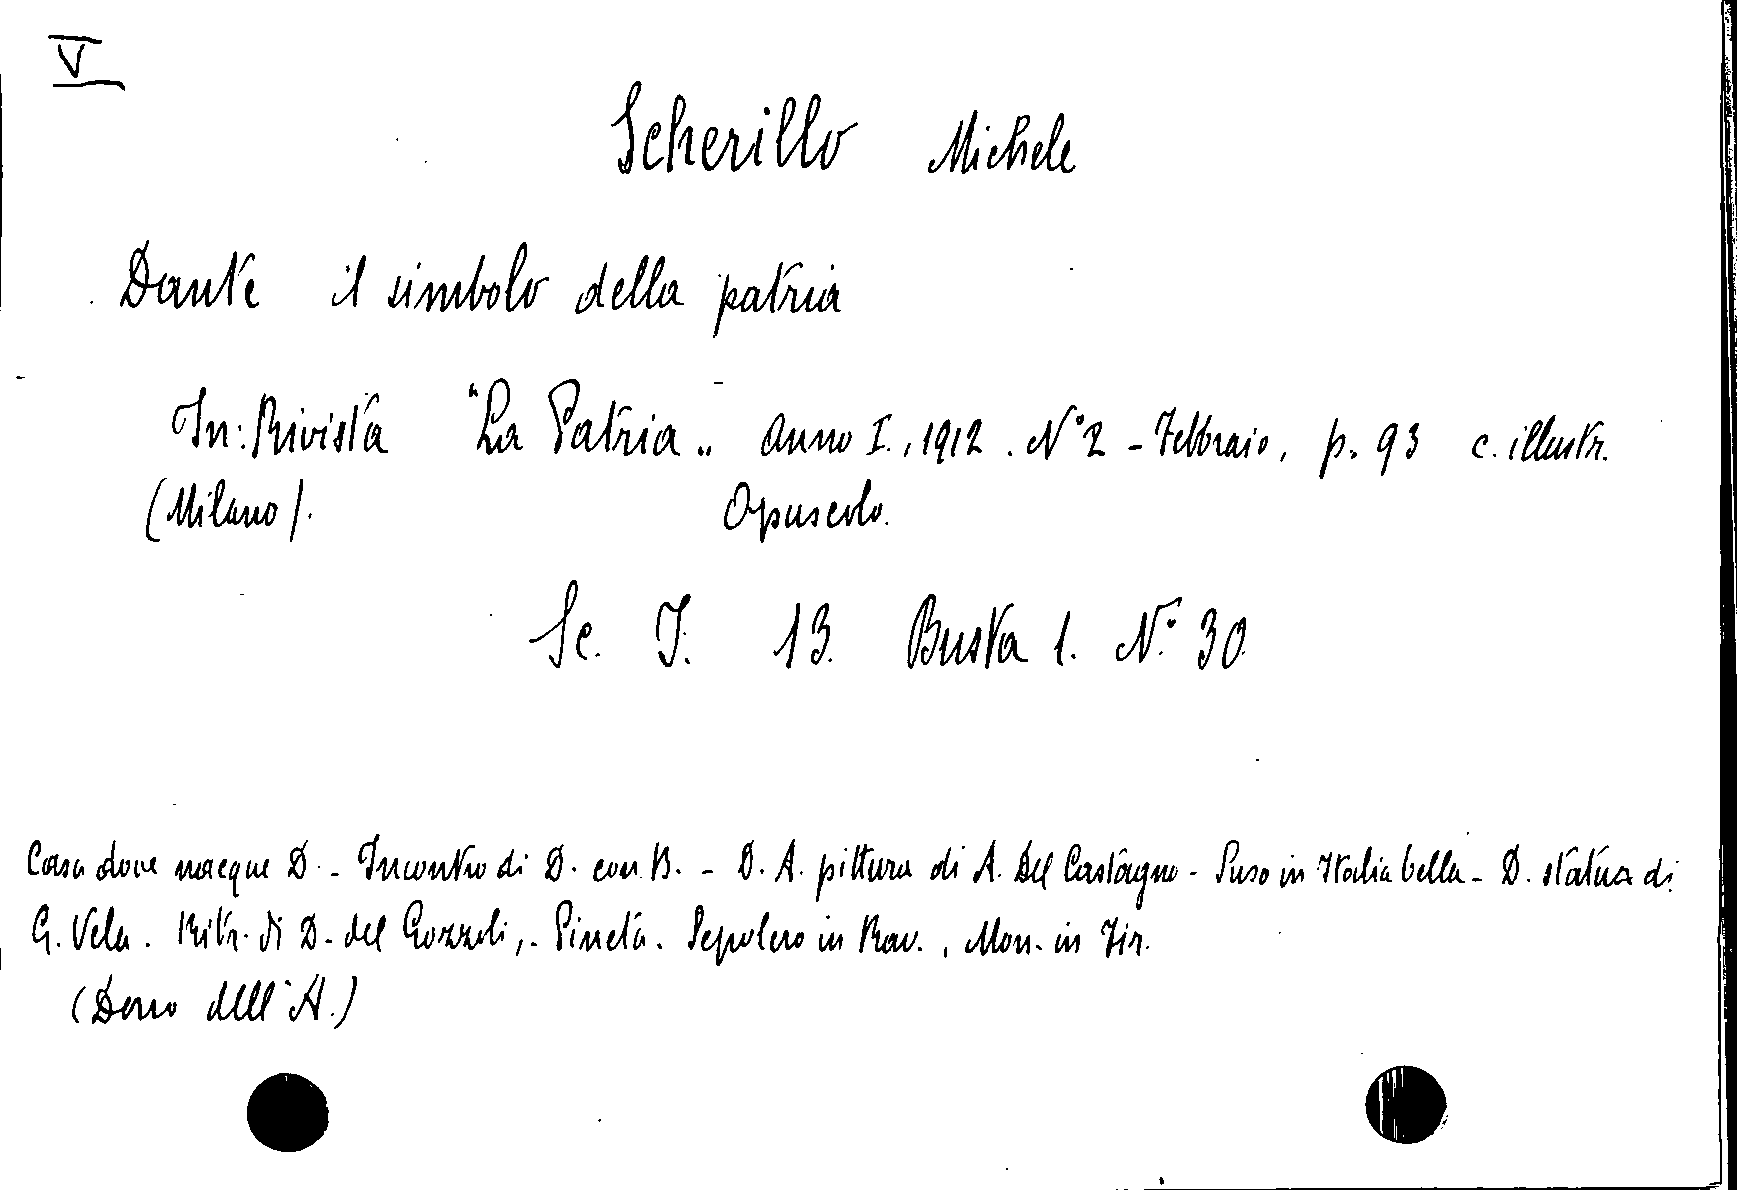 V
Scherillo Michele
Dante il simbolo della patria
In: Rivista "La Patria„ Anno I., 1912. N° 2 - Febbraio, p. 93 c. illustr.
(Milano). Opuscolo.
Sc. I. 13. Busta 1. N.° 30.
Casa dove nacque D. - Incontro di D. con B. - D. A. pittura di A. Del Castagno - Suso in Italia bella - D. statua di
G. Vela. Ritr. di D. del Gozzoli, - Pineta. Sepolcro in Rav., Mon. in Fir.
(Dono dell'A.)